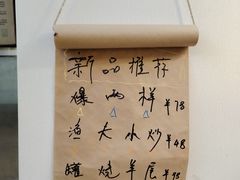 新品推荐
爆两样 ¥78
渔大小炒 ¥48
罐烧羊尾 ¥98